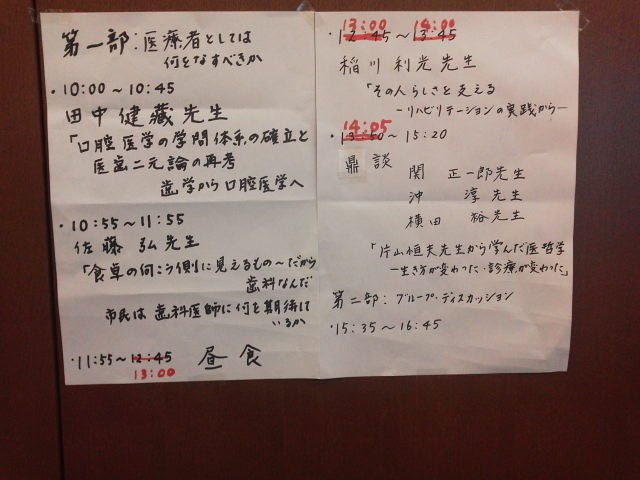 第一部:医療者としては
何をなすべきか
・10:00～10:45
田中健藏先生
「口腔医学の学問体系の確立と
医歯二元論の再考
歯学から口腔医学へ
・10:55～11:55
佐藤弘先生
「食卓の向こう側に見えるもの～だから
歯科なんだ
市民は歯科医師に何を期待して
いるか
・11:55～12:45 昼食
13:00
13:00 14:00
・12:45～13:45
稲川利光先生
「その人らしさを支える
－リハビリテーションの実践から－
14:05
・13:50～15:20
鼎談
関 正一郎先生
沖 淳先生
横田 裕先生
「片山恒夫先生から学んだ医哲学
－生き方が変わった・診療が変わった」
第二部:グループ・ディスカッション
・15:35～16:45